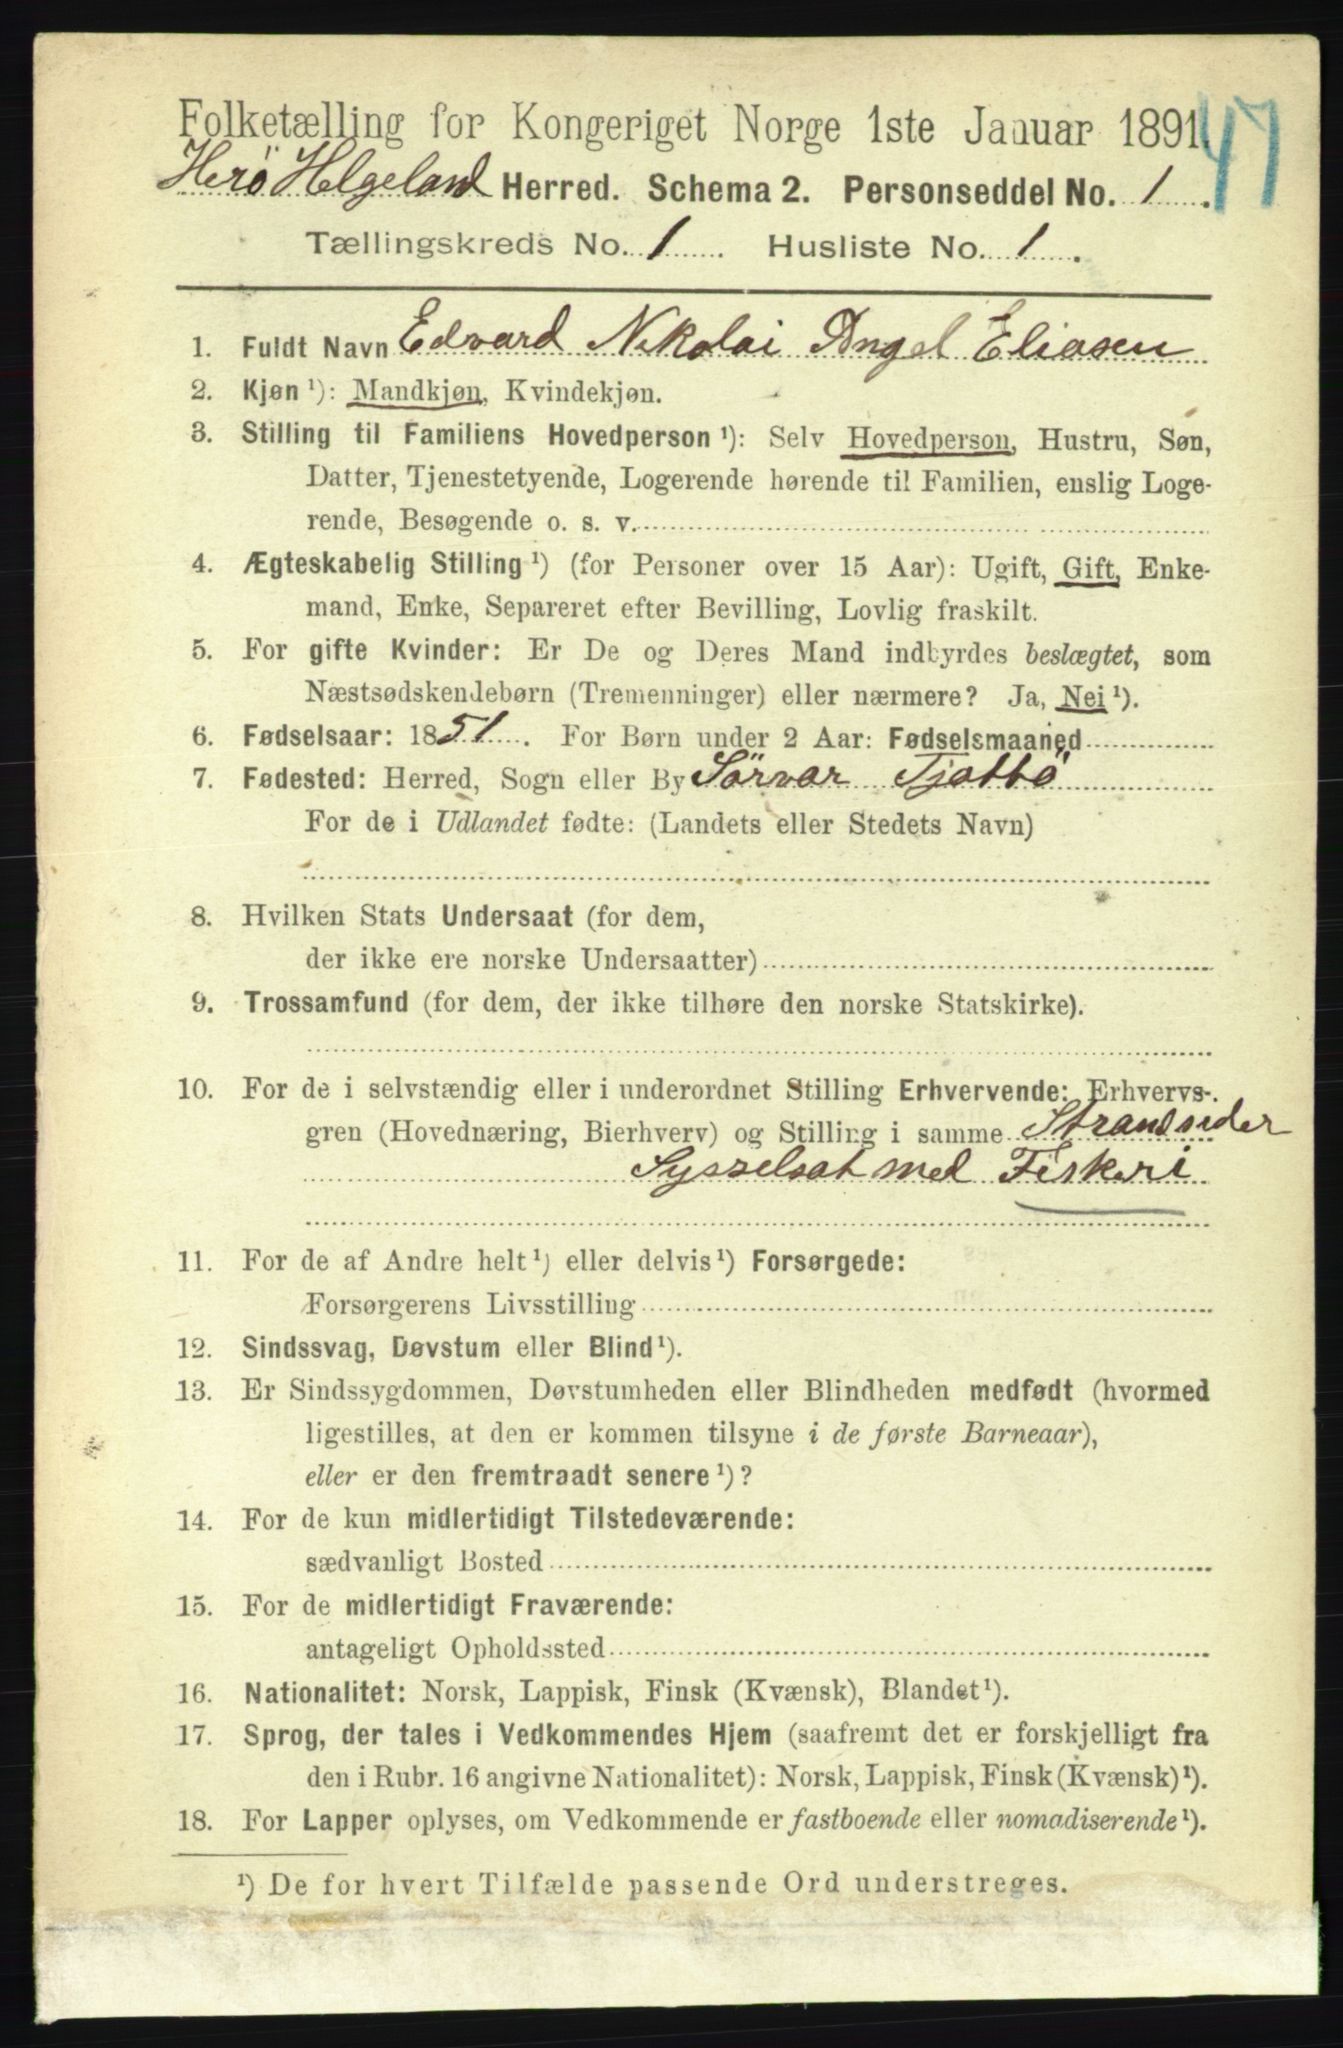 Folketælling for Kongeriget Norge 1ste Januar 1891.
47
Herö Helgeland Herred. Schema 2. Personseddel No. 1.
Tællingskreds No. 1. Husliste No. 1.
1. Fuldt Navn Edvard Nikolai Angel Eliasen
2. Kjøn ¹): Mandkjøn, Kvindekjøn.
3. Stilling til Familiens Hovedperson ¹): Selv Hovedperson, Hustru, Søn,
Datter, Tjenestetyende, Logerende hørende til Familien, enslig Loge-
rende, Besøgende o. s. v.
4. Ægteskabelig Stilling ¹) (for Personer over 15 Aar): Ugift, Gift, Enke-
mand, Enke, Separeret efter Bevilling, Lovlig fraskilt.
5. For gifte Kvinder: Er De og Deres Mand indbyrdes beslægtet, som
Næstsødskendebørn (Tremenninger) eller nærmere? Ja, Nei ¹).
6. Fødselsaar: 1851. For Børn under 2 Aar: Fødselsmaaned
7. Fødested: Herred, Sogn eller By Sörvar Tjøttö
For de i Udlandet fødte: (Landets eller Stedets Navn)
8. Hvilken Stats Undersaat (for dem,
der ikke ere norske Undersaatter)
9. Trossamfund (for dem, der ikke tilhøre den norske Statskirke).
10. For de i selvstændig eller i underordnet Stilling Erhvervende: Erhvervs-
gren (Hovednæring, Bierhverv) og Stilling i samme Strandsider
Sysselsat med Fiskeri
11. For de af Andre helt ¹) eller delvis ¹) Forsørgede:
Forsørgerens Livsstilling
12. Sindssvag, Døvstum eller Blind ¹).
13. Er Sindssygdommen, Døvstumheden eller Blindheden medfødt (hvormed
ligestilles, at den er kommen tilsyne i de første Barneaar),
eller er den fremtraadt senere ¹)?
14. For de kun midlertidigt Tilstedeværende:
sædvanligt Bosted
15. For de midlertidigt Fraværende:
antageligt Opholdssted
16. Nationalitet: Norsk, Lappisk, Finsk (Kvænsk), Blandet ¹).
17. Sprog, der tales i Vedkommendes Hjem (saafremt det er forskjelligt fra
den i Rubr. 16 angivne Nationalitet): Norsk, Lappisk, Finsk (Kvænsk) ¹).
18. For Lapper oplyses, om Vedkommende er fastboende eller nomadiserende ¹).
¹) De for hvert Tilfælde passende Ord understreges.